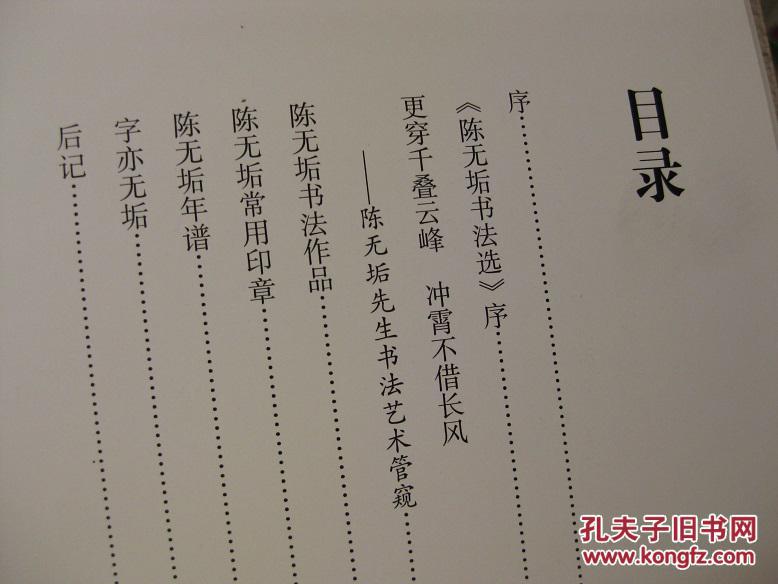 目录
序
《陈无垢书法选》序
更穿千叠云峰 冲霄不借长风
——陈无垢先生书法艺术管窥
陈无垢书法作品
陈无垢常用印章
陈无垢年谱
字亦无垢
后记
孔夫子旧书网
www.kongfz.com